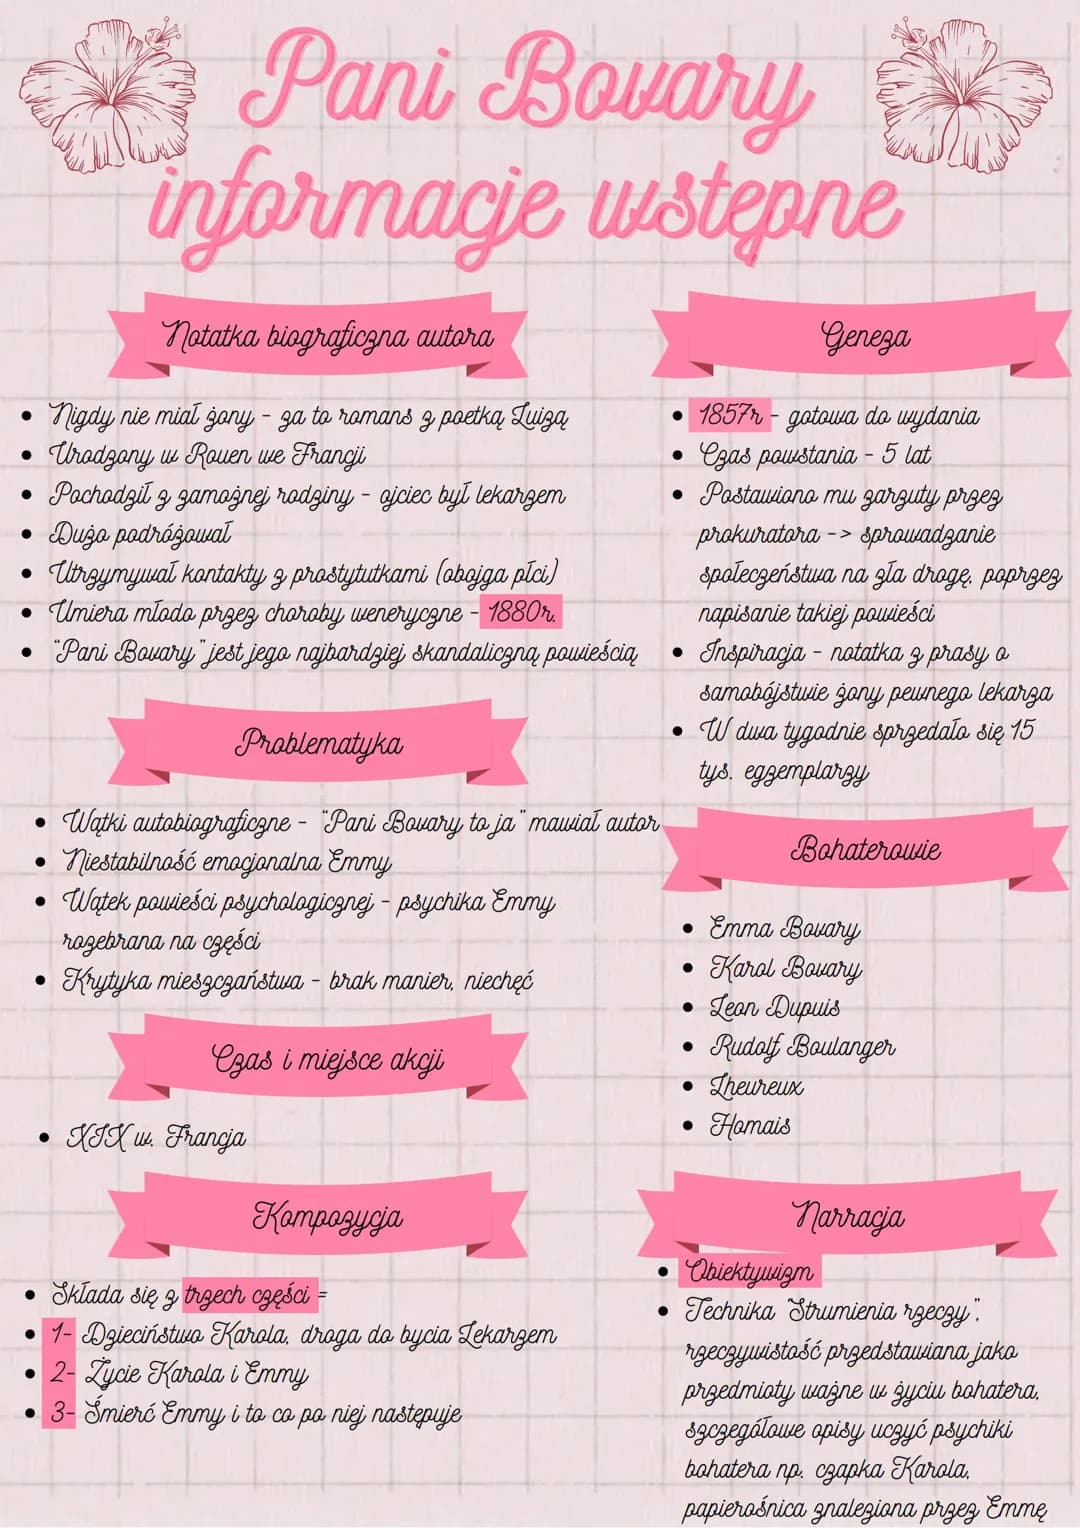 Pani Bovary
informacje wstępne
Notatka biograficzna autora
• Nigdy nie miał żony - za to romans z poetką Luizą
• Urodzony w Rouen we Francji
• Pochodził z zamożnej rodziny - ojciec był lekarzem
• Dużo podróżował
• Utrzymywał kontakty z prostytutkami (obojga płci)
• Umiera młodo przez choroby weneryczne - 1880r.
• "Pani Bovary" jest jego najbardziej skandaliczną powieścią
Problematyka
• Wątki autobiograficzne - "Pani Bovary to ja" mawiał autor
• Niestabilność emocjonalna Emmy
• Wątek powieści psychologicznej - psychika Emmy
rozebrana na części
• Krytyka mieszczaństwa - brak manier, niechęć
Czas i miejsce akcji
• XIX w. Francja
Kompozycja
• Składa się z trzech części =
• 1- Dzieciństwo Karola, droga do bycia Lekarzem
• 2- Życie Karola i Emmy
• 3- Śmierć Emmy i to co po niej następuje
Geneza
• 1857r - gotowa do wydania
• Czas powstania - 5 lat
• Postawiono mu zarzuty przez
prokuratora -> sprowadzanie
społeczeństwa na zła drogę, poprzez
napisanie takiej powieści
• Inspiracja - notatka z prasy o
samobójstwie żony pewnego lekarza
• W dwa tygodnie sprzedało się 15
tys. egzemplarzy
Bohaterowie
• Emma Bovary
• Karol Bovary
• Leon Dupuis
• Rudolf Boulanger
• Lheureux
• Homais
Narracja
• Obiektywizm
• Technika "Strumienia rzeczy",
rzeczywistość przedstawiana jako
przedmioty ważne w życiu bohatera,
szczegółowe opisy uczyć psychiki
bohatera np. czapka Karola,
papierośnica znaleziona przez Emmę